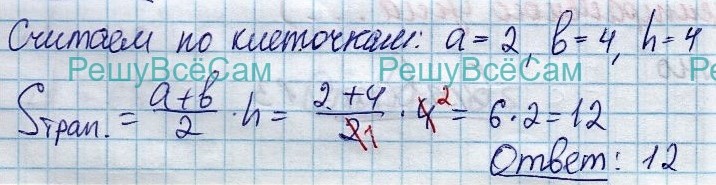 Считаем по клеточкам: a = 2, b = 4, h = 4
РешуВсёСам РешуВсёСам
Sтрап. = (a+b)/2 · h = (2+4)/2 1 · 4 2 = 6·2 = 12
Ответ: 12